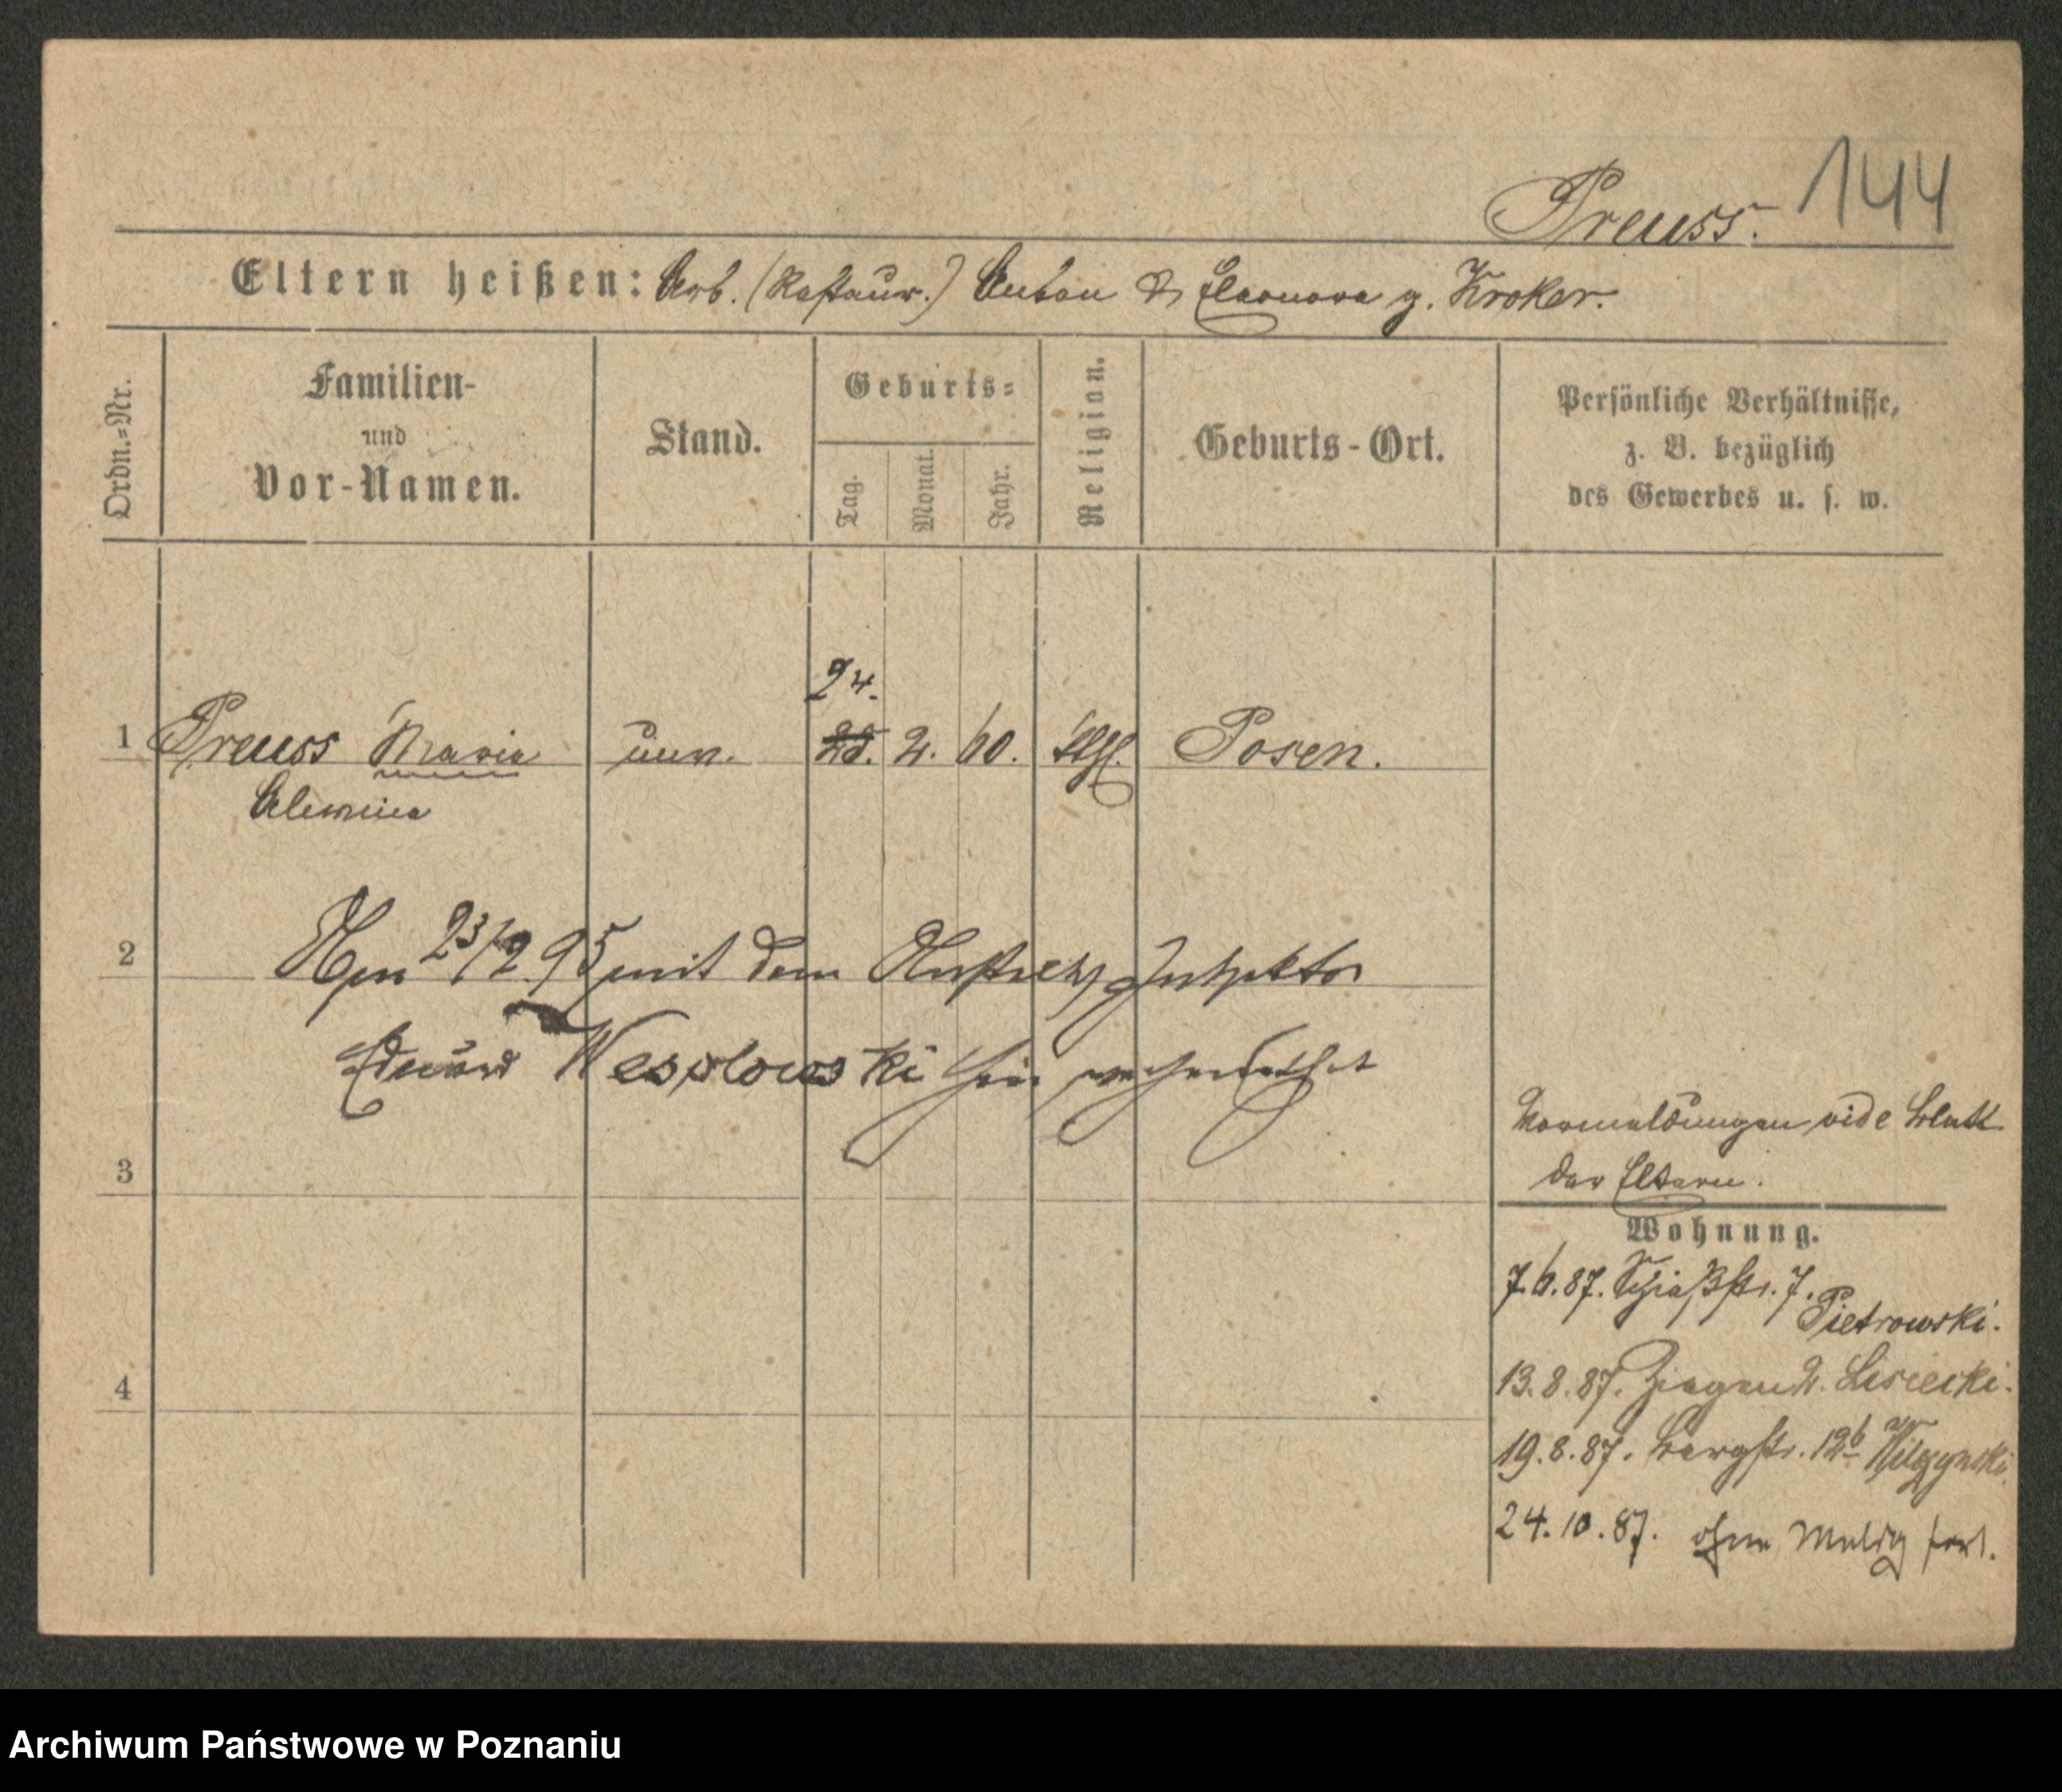 144
Preuss.
Eltern heißen: Arb. (Restaur.) Anton & Eleonora g. Kroker.
Ordn.-Nr.
Familien-
und
Vor-Namen.
Stand.
Geburts-
Tag.
Monat.
Jahr.
Religion.
Geburts-Ort.
Persönliche Verhältnisse,
z. B. bezüglich
des Gewerbes u. s. w.
24.
1 Preuss Maria unv. 2. 60. Posen.
2 23/2 95 mit dem Inspektor
Eduard Wesolowski hier verheirathet
3
Vormeldungen vide Blatt
der Eltern.
Wohnung.
7.6.87. Schießstr. 7.
Pietrowski.
4
13.8.87. Ziegen 2. Lisiecki.
19.8.87. Bergstr. 12b
24.10.87. ohne Meldg fort.
Archiwum Państwowe w Poznaniu